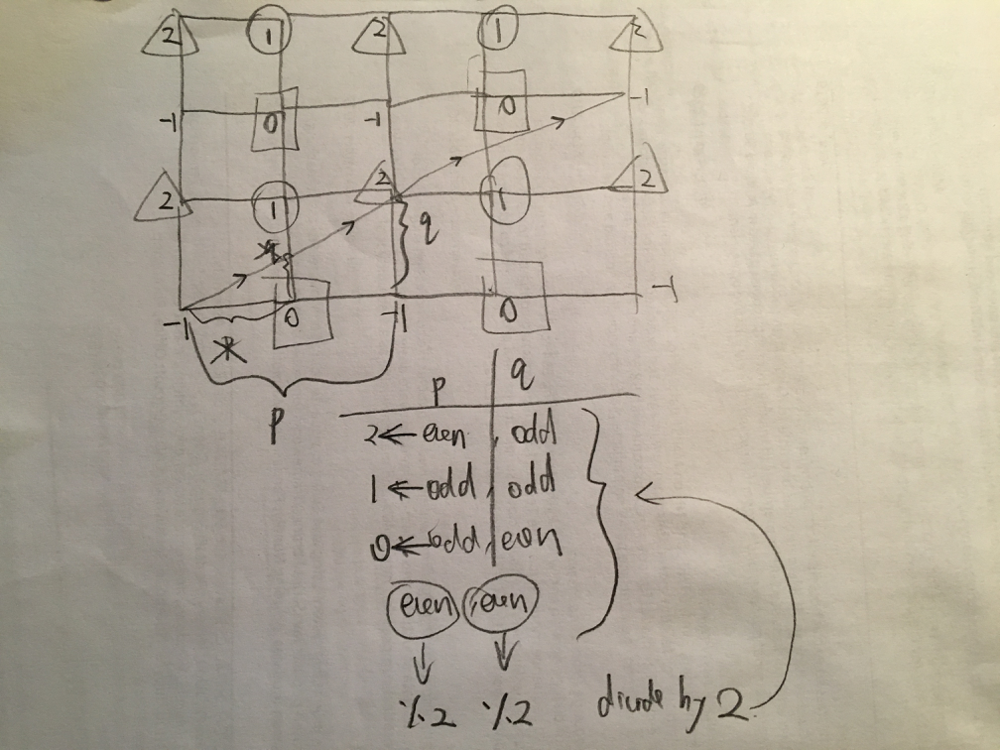 2 1 2 1 2
-1 0 -1 0 -1
2 1 2 1 2
q
-1 0 -1 0 -1
p
p q
2 ← even, odd
1 ← odd, odd
0 ← odd, even
even, even
%2 %2 divide by 2